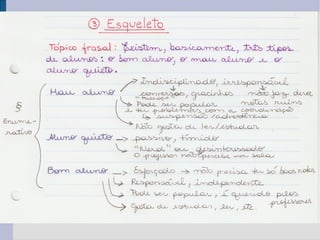 ③ Esqueleto
Tópico frasal: Existem, basicamente, três tipos
de alunos: o bom aluno, o mau aluno e o
aluno quieto.
Mau aluno → Indisciplinado, irresponsável
conversas, gracinhas não faz dever
notas ruins
→ Pode ser popular
e ter problemas com a coordenação
↳ suspensão / advertência
→ Não gosta de ler/estudar
§
Enume-
rativo
Aluno quieto → passivo, tímido
→ "Nerd" ou desinteressado
O professor não percebe na sala
Bom aluno → Esforçado → não precisa ter só boas notas
→ Responsável, independente
→ Pode ser popular, é querido pelos
professores
→ Gosta de estudar, ler, etc.